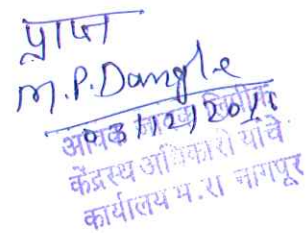 प्राप्त
M.P. Dangle
03/12/20
केंद्रस्थ अधिकारी यांचे
कार्यालय म.रा नागपूर